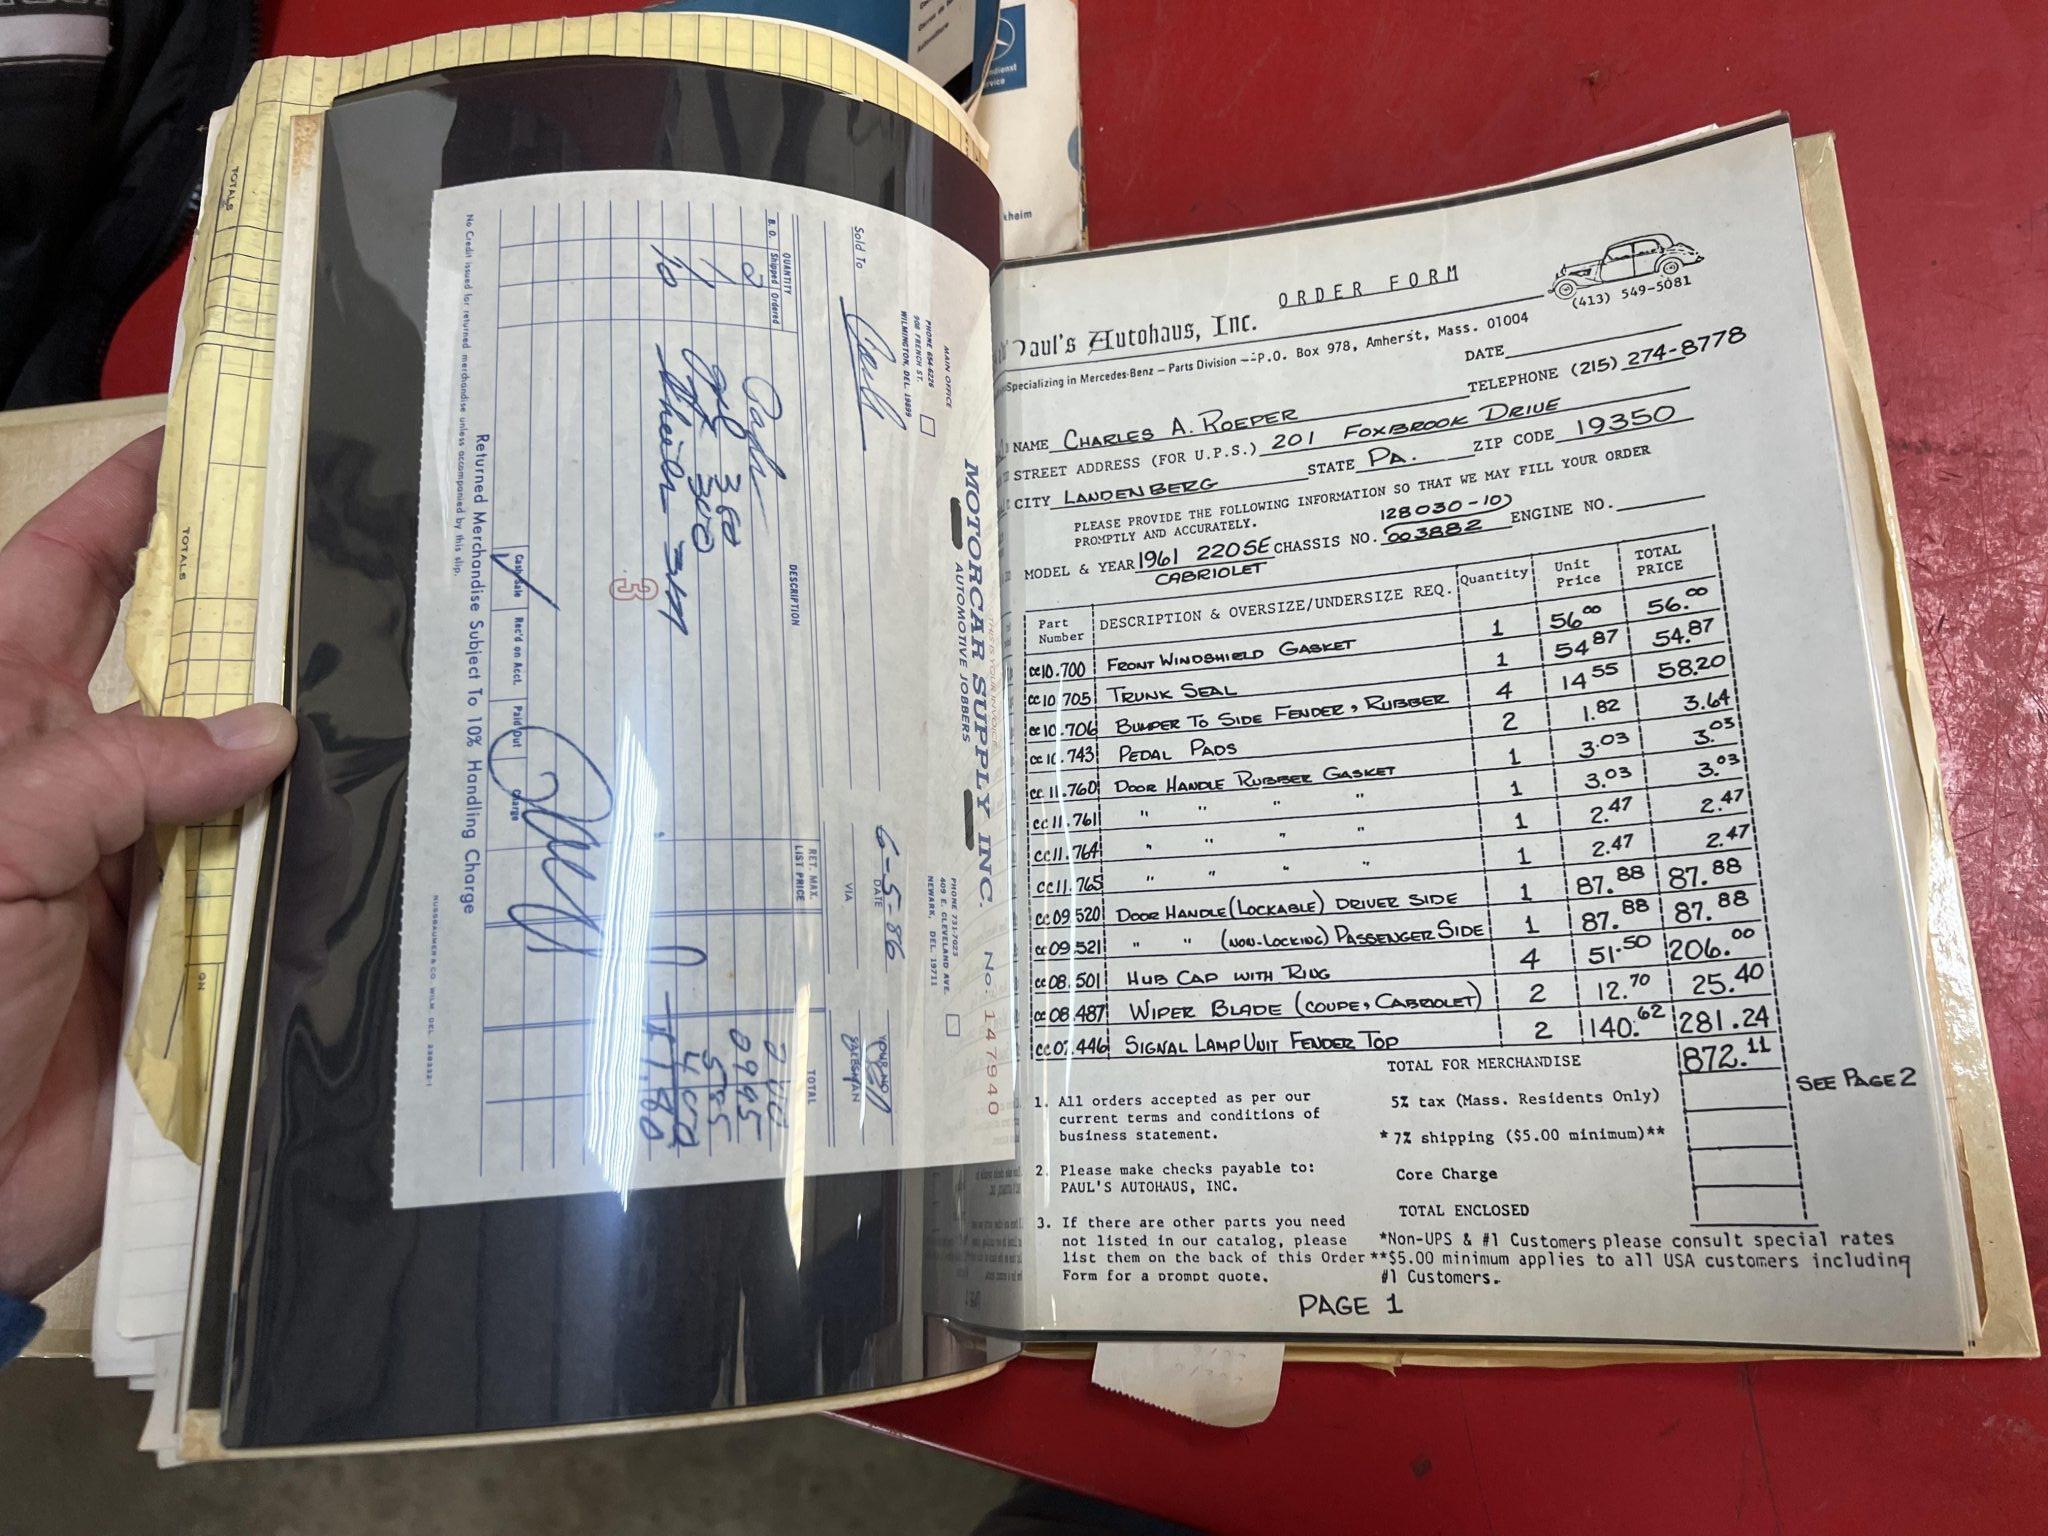 TOTALS
TOTALS
ON
ndienst
rvice
kheim
MOTORCAR SUPPLY INC.
AUTOMOTIVE JOBBERS
MAIN OFFICE
PHONE 654-6226
908 FRENCH ST.
WILMINGTON, DEL. 19899
PHONE 731-7023
409 E. CLEVELAND AVE.
NEWARK, DEL. 19711
No. 147940
Sold To Cash
6-5-86
DATE
VIA
SALESMAN
QUANTITY
B. O. Shipped Ordered
DESCRIPTION
RET MAX.
LIST PRICE
TOTAL
3
Cash Sale Rec'd on Acct. Paid Out Charge
Returned Merchandise Subject To 10% Handling Charge
No Credit issued for returned merchandise unless accompanied by this slip.
ORDER FORM
(413) 549-5081
Paul's Autohaus, Inc.
Specializing in Mercedes-Benz — Parts Division — P.O. Box 978, Amherst, Mass. 01004
DATE
TELEPHONE (215) 274-8778
NAME CHARLES A. ROEPER
STREET ADDRESS (FOR U.P.S.) 201 FOXBROOK DRIVE
CITY LANDENBERG STATE PA. ZIP CODE 19350
PLEASE PROVIDE THE FOLLOWING INFORMATION SO THAT WE MAY FILL YOUR ORDER
PROMPTLY AND ACCURATELY.
128030-10
MODEL & YEAR 1961 220SE CHASSIS NO. 003882 ENGINE NO.
CABRIOLET
Part Number DESCRIPTION & OVERSIZE/UNDERSIZE REQ. Quantity Unit Price TOTAL PRICE
cc10.700 FRONT WINDSHIELD GASKET 1 56.00 56.00
cc10.705 TRUNK SEAL 1 54.87 54.87
cc10.706 BUMPER TO SIDE FENDER, RUBBER 4 14.55 58.20
cc10.743 PEDAL PADS 2 1.82 3.64
cc11.760 DOOR HANDLE RUBBER GASKET 1 3.03 3.03
cc11.761 " " " " 1 3.03 3.03
cc11.764 " " " " 1 2.47 2.47
cc11.765 " " " " 1 2.47 2.47
cc09.520 DOOR HANDLE (LOCKABLE) DRIVER SIDE 1 87.88 87.88
cc09.521 " " (NON-LOCKING) PASSENGER SIDE 1 87.88 87.88
cc08.501 HUB CAP WITH RING 4 51.50 206.00
cc08.487 WIPER BLADE (COUPE, CABRIOLET) 2 12.70 25.40
cc07.446 SIGNAL LAMP UNIT FENDER TOP 2 140.62 281.24
TOTAL FOR MERCHANDISE 872.11
SEE PAGE 2
5% tax (Mass. Residents Only)
*7% shipping ($5.00 minimum)**
Core Charge
TOTAL ENCLOSED
1. All orders accepted as per our
current terms and conditions of
business statement.
2. Please make checks payable to:
PAUL'S AUTOHAUS, INC.
3. If there are other parts you need
not listed in our catalog, please
list them on the back of this Order
Form for a prompt quote.
*Non-UPS & #1 Customers please consult special rates
**$5.00 minimum applies to all USA customers including
#1 Customers.
PAGE 1